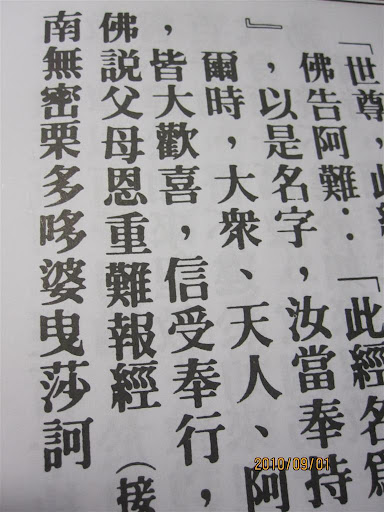 「世尊，此經
佛告阿難：「此經名為
』，以是名字，汝當奉持
爾時，大衆、天人、阿
，皆大歡喜，信受奉行，
佛說父母恩重難報經 （接
南無密栗多哆婆曳莎訶
2010/09/01